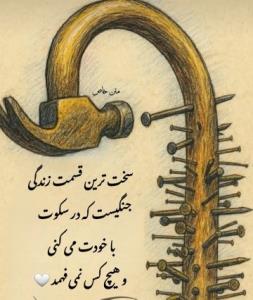 متن خاص
سخت ترین قسمت زندگی
جنگیست که در سکوت
با خودت می کنی
و هیچ کس نمی فهمد